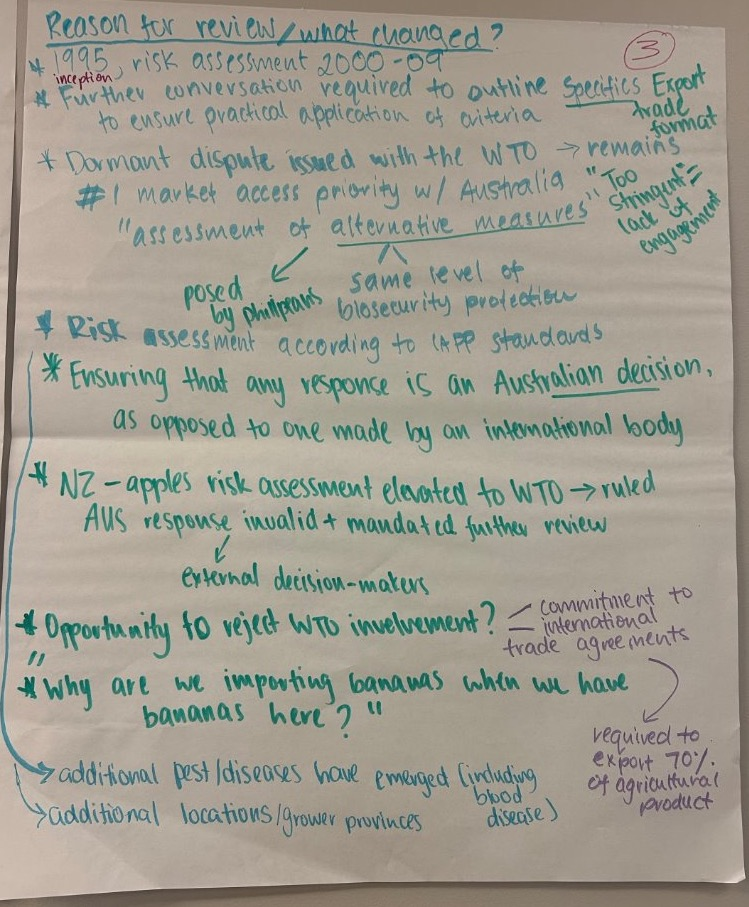 Reason for review/what changed?
3
* 1995, risk assessment 2000-09
inception
* Further conversation required to outline specifics
to ensure practical application of criteria
Export
trade
format
* Dormant dispute issued with the WTO → remains
#1 market access priority w/ Australia
"assessment of alternative measures"
"Too
stringent" =
lack of
engagement
posed
by philipeans
same level of
biosecurity protection
* Risk assessment according to IAPP standards
* Ensuring that any response is an Australian decision,
as opposed to one made by an international body
* NZ - apples risk assessment elevated to WTO → ruled
AUS response invalid + mandated further review
external decision-makers
* Opportunity to reject WTO involvement?
commitment to
international
trade agreements
* "Why are we importing bananas when we have
bananas here?"
required to
export 70%
of agricultural
product
→ additional pest/diseases have emerged (including
blood
disease)
→ additional locations/grower provinces